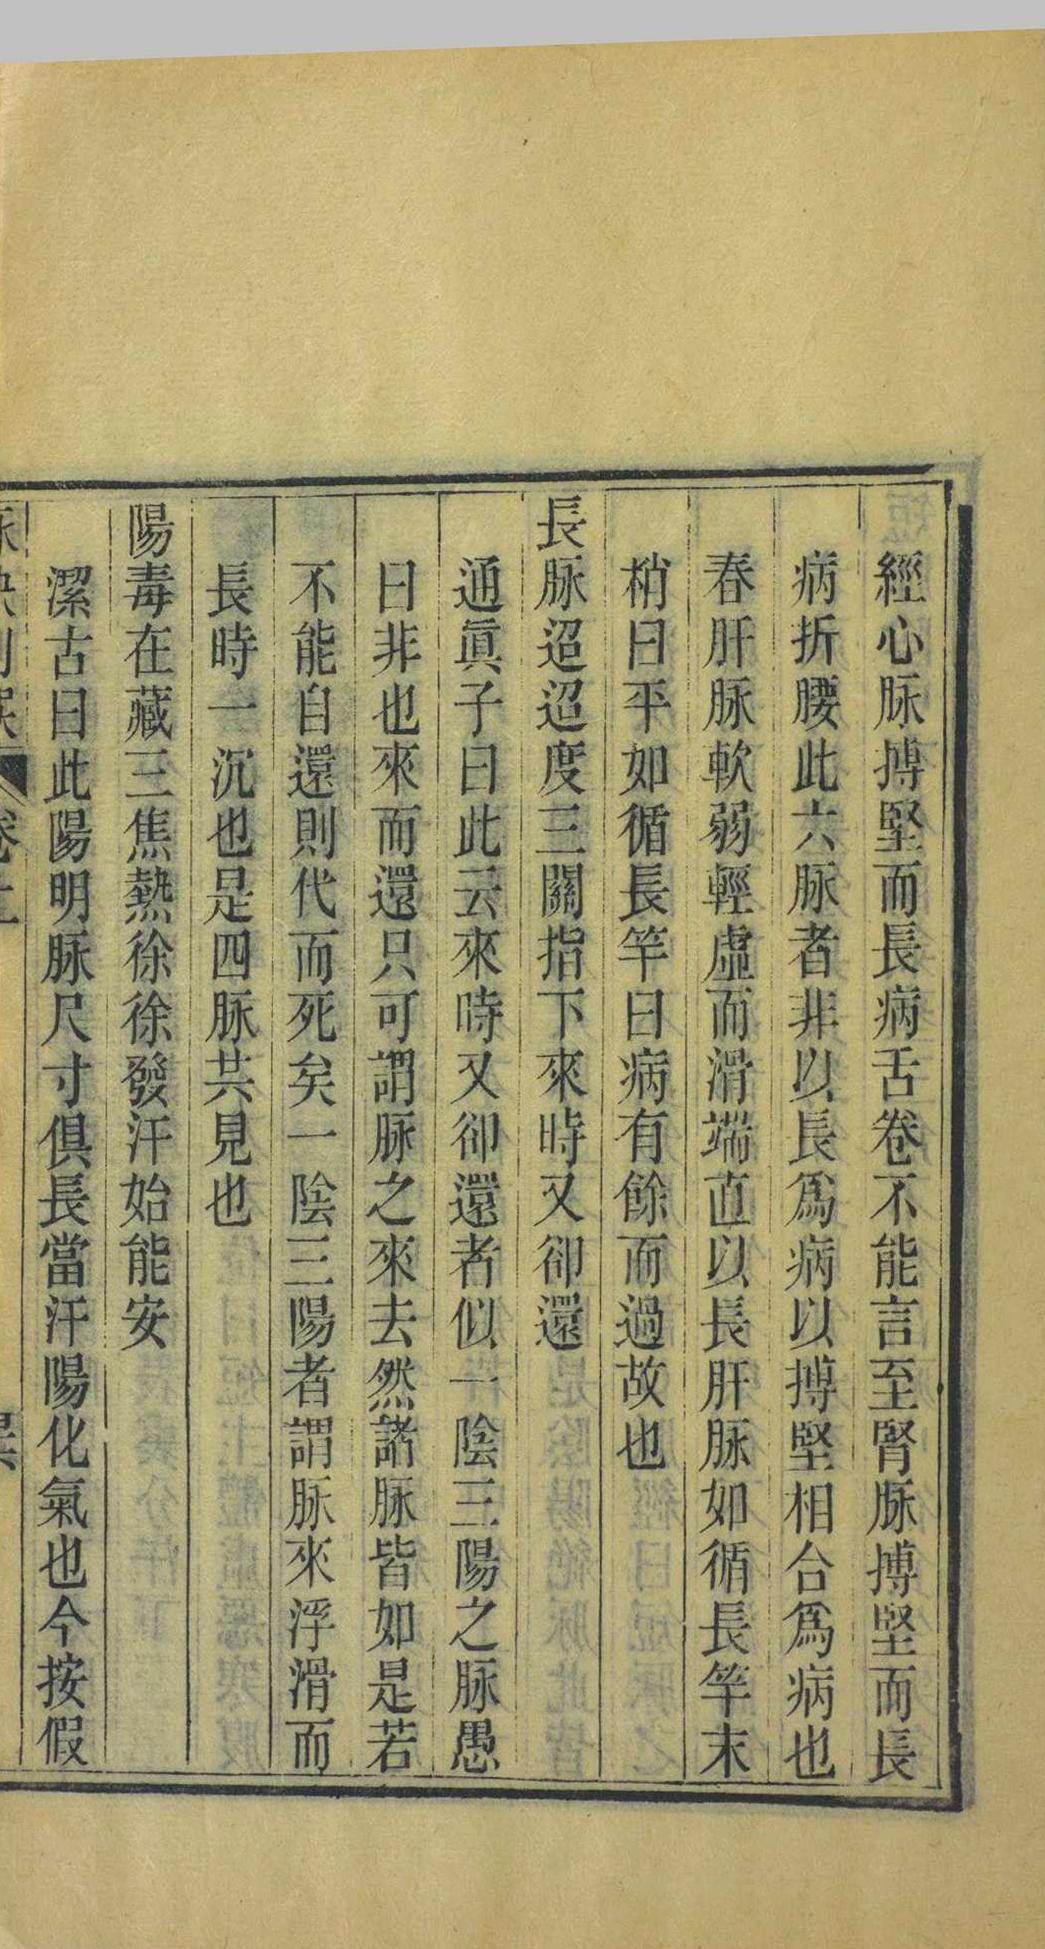 經心脉搏堅而長病舌卷不能言至腎脉搏堅而長
病折腰此六脉者非以長爲病以搏堅相合爲病也
春肝脉軟弱輕虛而滑端直以長肝脉如循長竿末
梢曰平如循長竿曰病有餘而過故也
長脉迢迢度三關指下來時又卻還
通眞子曰此云來時又卻還者似一陰三陽之脉愚
曰非也來而還只可謂脉之來去然諸脉皆如是若
不能自還則代而死矣一陰三陽者謂脉來浮滑而
長時一沉也是四脉共見也
陽毒在藏三焦熱徐徐發汗始能安
潔古曰此陽明脉尺寸俱長當汗陽化氣也今按假